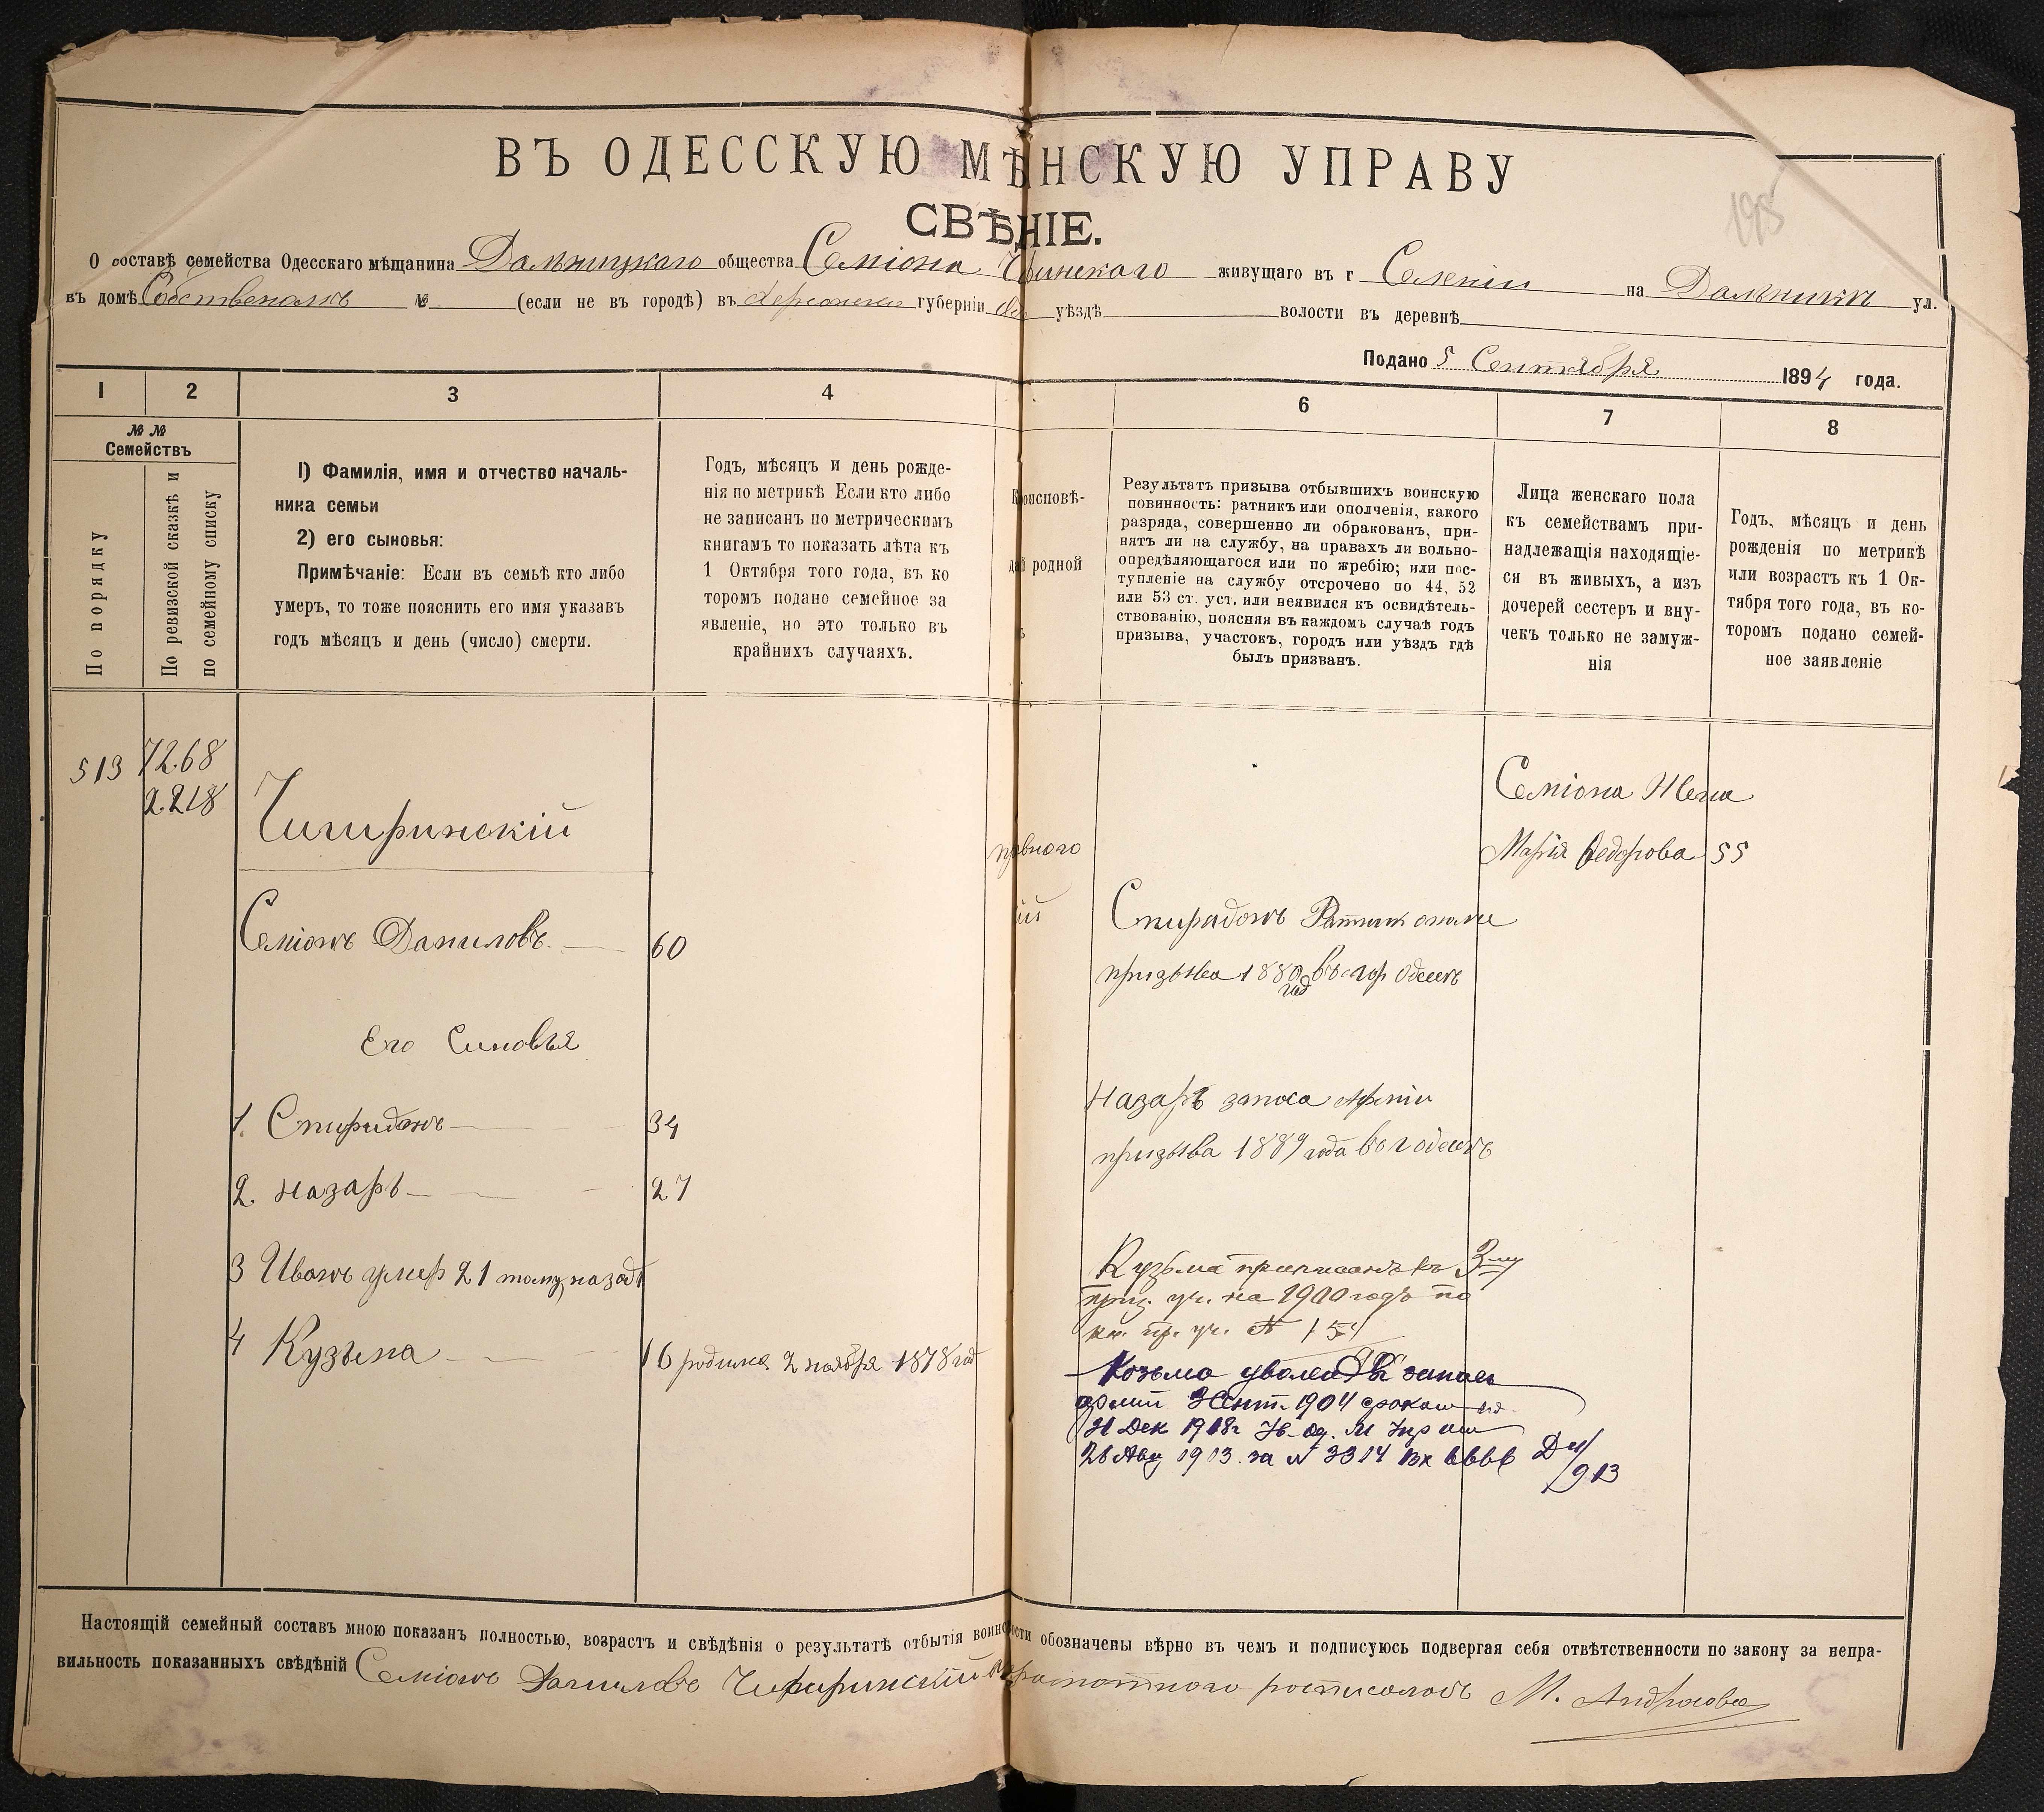 198
ВЪ ОДЕССКУЮ МѢНСКУЮ УПРАВУ
СВѢНІЕ.
О составѣ семейства Одесскаго мѣщанина Дальницкаго общества Семіона Чинскаго живущаго въ г Селеніи на Дальникъ ул.
въ домѣ Собственомъ № (если не въ городѣ) въ Херсонской губерніи уѣздѣ волости въ деревнѣ
Подано 5 Сентября 1894 года.
1 2 3 4 6 7 8
№ № Семействъ
По порядку
По ревизской сказкѣ и
по семейному списку
1) Фамилія, имя и отчество началь-
ника семьи
2) его сыновья:
Примѣчаніе: Если въ семьѣ кто либо
умеръ, то тоже пояснить его имя указавъ
годъ мѣсяцъ и день (число) смерти.
Годъ, мѣсяцъ и день рожде-
нія по метрикѣ Если кто либо
не записанъ по метрическимъ
книгамъ то показать лѣта къ
1 Октября того года, въ ко
торомъ подано семейное за
явленіе, но это только въ
крайнихъ случаяхъ.
оисповѣ-
родной
Результатъ призыва отбывшихъ воинскую
повинность: ратникъ или ополченія, какого
разряда, совершенно ли обракованъ, при-
нятъ ли на службу, на правахъ ли вольно-
опредѣляющагося или по жребію; или пос-
тупленіе на службу отсрочено по 44, 52
или 53 ст. уст. или неявился къ освидѣтель-
ствованію, поясняя въ каждомъ случаѣ годъ
призыва, участокъ, городъ или уѣздъ гдѣ
былъ призванъ.
Лица женскаго пола
къ семействамъ при-
надлежащія находящіе-
ся въ живыхъ, а изъ
дочерей сестеръ и вну-
чекъ только не замуж-
нія
Годъ, мѣсяцъ и день
рожденія по метрикѣ
или возрастъ къ 1 Ок-
тября того года, въ ко-
торомъ подано семей-
ное заявленіе
513 7268
2.218
Чигиринскій
Семіонъ Даниловъ 60
Его Синовья
1. Спиридонъ 34
2. Назаръ 27
3 Иванъ умер 21 тому назадъ
4 Кузьма 16 родился 2 ноября 1878 год
вного
ій
Спирадонъ Ратник
призыва 1880 год въ гор Одессѣ
Назаръ запаса Арміи
призыва 1889 года во г одессѣ
Кузьма приписанъ къ 3му
приз. уч. на 1900 годъ по
кн. пр. уч. № 154
Козьма уволен въ запас
армии 1904 сроком
31 Дек 1918г
26 Авг 1913 за № 3314 Вх 6666
913
Семіона Жена
Марія Федорова 55
Настоящій семейный составъ мною показанъ полностью, возрастъ и свѣдѣнія о результатѣ отбытія воинности обозначены вѣрно въ чемъ и подписуюсь подвергая себя отвѣтственности по закону за непра-
вильность показанныхъ свѣдѣній Семіонъ Даниловъ Чигиринскій росписался М. Андросова